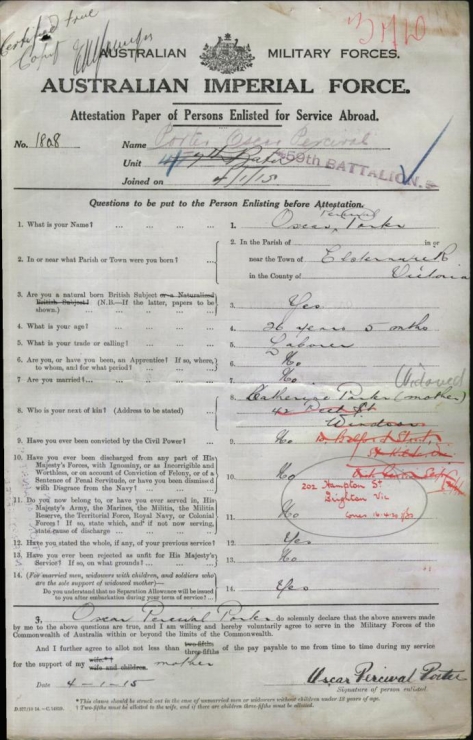 Certified true
Copy
AUSTRALIAN MILITARY FORCES.
AUSTRALIAN IMPERIAL FORCE.
Attestation Paper of Persons Enlisted for Service Abroad.
No. 1808 Name Porter Oscar Percival
Unit 59th BATTALION.
Joined on 4/1/15
Questions to be put to the Person Enlisting before Attestation.
1. What is your Name? ... 1. Oscar Percival Porter
2. In or near what Parish or Town were you born? ... 2. In the Parish of in or
near the Town of Elsternwick
in the County of Victoria
3. Are you a natural born British Subject or a Naturalized
British Subject? (N.B.—If the latter, papers to be
shown.) 3. Yes
4. What is your age? 4. 26 years 5 months
5. What is your trade or calling? 5. Laborer
6. Are you, or have you been, an Apprentice? If so, where,
to whom, and for what period? 6. No
7. Are you married? 7. No. Widowed
8. Who is your next of kin? (Address to be stated) 8. Catherine Porter (mother)
42 Peel St
Windsor
9. Have you ever been convicted by the Civil Power? 9. No
10. Have you ever been discharged from any part of His
Majesty's Forces, with Ignominy, or as Incorrigible and
Worthless, or on account of Conviction of Felony, or of a
Sentence of Penal Servitude, or have you been dismissed
with Disgrace from the Navy? 10. No
202 Hampton St
Brighton Vic
11. Do you now belong to, or have you ever served in, His
Majesty's Army, the Marines, the Militia, the Militia
Reserve, the Territorial Force, Royal Navy, or Colonial
Forces? If so, state which, and if not now serving,
state cause of discharge 11. No
12. Have you stated the whole, if any, of your previous service? 12. Yes
13. Have you ever been rejected as unfit for His Majesty's
Service? If so, on what grounds? 13. No
14. (For married men, widowers with children, and soldiers who
are the sole support of widowed mother)—
Do you understand that no Separation Allowance will be issued
to you after embarkation during your term of service? 14. Yes
I, Oscar Percival Porter do solemnly declare that the above answers made
by me to the above questions are true, and I am willing and hereby voluntarily agree to serve in the Military Forces of the
Commonwealth of Australia within or beyond the limits of the Commonwealth.
And I further agree to allot not less than two-fifths
three-fifths of the pay payable to me from time to time during my service
for the support of my wife*†
wife and children. mother
Date 4-1-15 Oscar Percival Porter
Signature of person enlisted.
* This clause should be struck out in the case of unmarried men or widowers without children under 18 years of age.
† Two-fifths must be allotted to the wife, and if there are children three-fifths must be allotted.